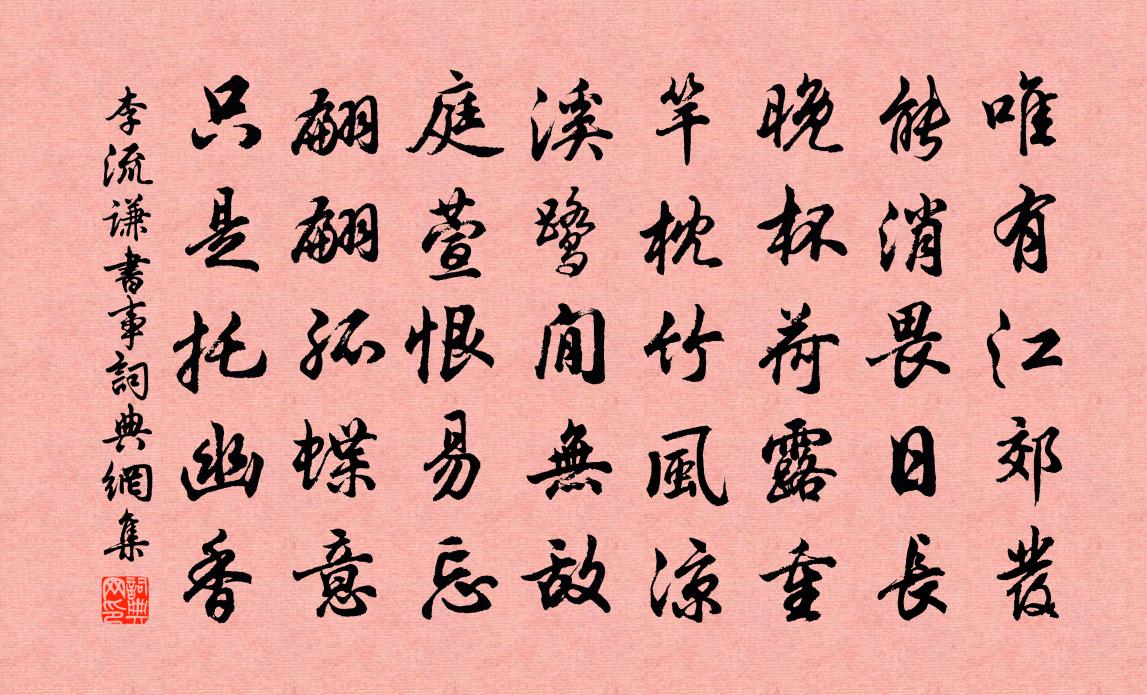 唯有江郊發
能消畏日長
晚杯荷露重
竿枕竹風涼
溪鷺閒無敵
庭萱恨易忘
翩翩孤蝶意
只是托幽香
李流谦書事詞典網集
詞典网印